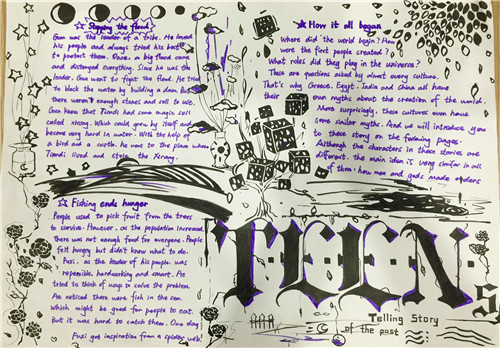 Stopping the flood
Gun was the leader of a tribe. He loved
his people and always tried his best
to protect them. Once, a big flood came
and distroyed everything. Since he was the
leader, Gun want to fight the flood. He tried
to block the water by building a dam. But
there weren't enough stones and soil to use.
Gun knew that Tiandi had some magic soil
called xirang. Which could grow by itself and
become very hard in water. With the help of
a bird and a turtle, he went to the place where
Tiandi lived and stole the Xirang.
Fishing ends hunger
People used to pick fruit from the trees
to survive. However, as the population increased,
there was not enough food for everyone. People
felt hungry but didn't know what to do.
Fuxi, as the leader of his people, was
reponsible, hardworking and smart. He
tried to think of ways to solve the problem.
He noticed there were fish in the sea.
Which might be good for people to eat.
But it was hard to catch them. One day
Fuxi got inspiration from a spider web!
How it all began
Where did the world begin? How
were the first people created?
What roles did they play in the universe?
These are questions asked by almost every culture.
That's why Greece, Egypt, India and China all have
their own myths about the creation of the world.
More surprisingly, these cultures even have
some similar myths. And we will introduce you
to these story on the following pages.
Although the characters in these stories are
different, the main idea is very similar in all
of them: how man and gods made orders
Telling Story
of the past